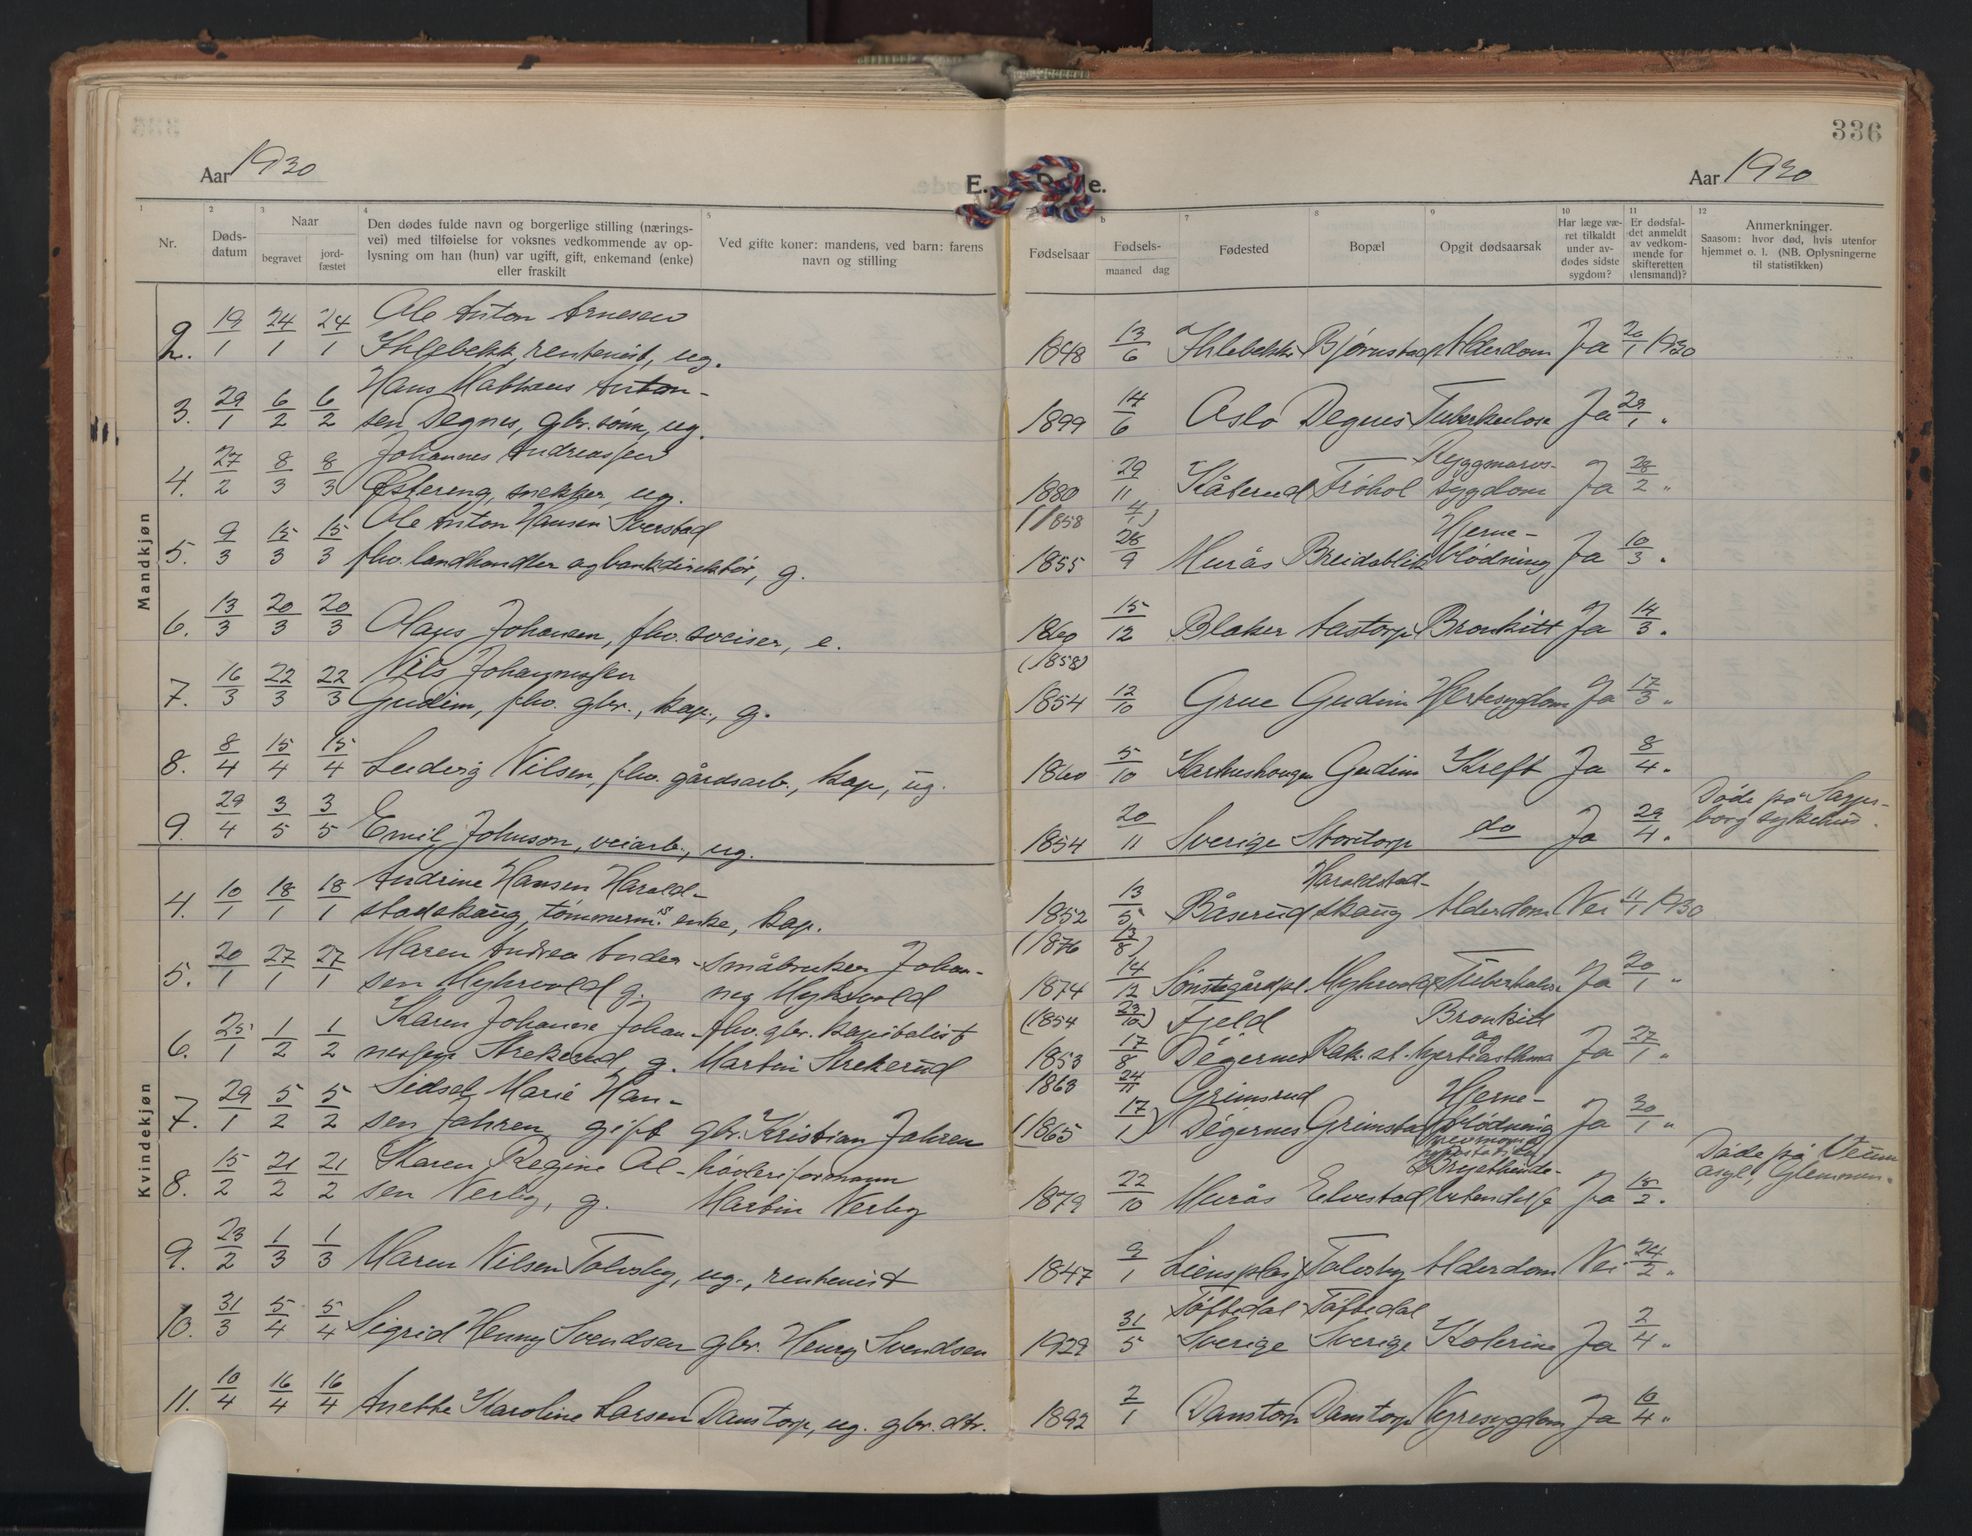 336
Aar 1930
E. Døde.
Aar 1930
1 Nr.
2 Døds-datum
3 Naar begravet jord-fæstet
4 Den dødes fulde navn og borgerlige stilling (nærings-
vei) med tilføielse for voksnes vedkommende av op-
lysning om han (hun) var ugift, gift, enkemand (enke)
eller fraskilt
5 Ved gifte koner: mandens, ved barn: farens
navn og stilling
Fødselsaar
b Fødsels- maaned dag
7 Fødested
8 Bopæl
9 Opgit dødsaarsak
10 Har læge væ-
ret tilkaldt
under av-
dødes sidste
sygdom?
11 Er dødsfal-
det anmeldt
av vedkom-
mende for
skifteretten
(lensmand)?
12 Anmerkninger.
Saasom: hvor død, hvis utenfor
hjemmet o. l. (NB. Oplysningerne
til statistikken)
Mandkjøn
2. 19/1 24/1 24/1 Ole Anton Arnesen
Ihlebekk, rentenist, ug. 1848 13/6 Ihlebekk Bjørnstad Alderdom Ja 20/1 1930
3. 29/1 6/2 6/2 Hans Mathæus Anton-
sen Degnes, gbr. sønn, ug. 1899 14/6 Oslo Degnes Tuberkulose Ja 29/1 "
4. 27/2 8/3 8/3 Johannes Andreassen
Østereng, snekker, ug. 1880 29/11 Kåterud Trøhol Ryggmarvs-
sygdom Ja 28/2 "
5. 9/3 15/3 15/3 Ole Anton Hansen Sverstad (1858 4/1)
fhv. landhandler og bankdirektør, g. 1855 28/9 Murås Breidablik Hjerne-
blødning Ja 10/3 "
6. 13/3 20/3 20/3 Olaus Johansen, fhv. sveiser, e. 1860 15/12 Blaker Aastorp Bronkitt Ja 14/3 "
7. 16/3 22/3 22/3 Nils Johannessen (1858)
Gudim, fhv. gbr., kap., g. 1854 12/10 Grue Gudim Hjertesygdom Ja 17/3 "
8. 8/4 15/4 15/4 Ludvig Nilsen, fhv. gårdsarb., kap., ug. 1860 5/10 Gudim Kreft Ja 8/4 "
9. 29/4 3/5 3/5 Emil Johnson, veiarb., ug. 1854 20/11 Sverige Stortorp do Ja 29/4 " Døde på Sarps-
borg sykehus.
Kvindekjøn
4. 10/1 18/1 18/1 Andrine Hansen Harald-
stadskaug, tømmerm.s enke, kap. 1852 13/5 Båserud Haraldstad-
skaug Alderdom Nei 11/1 1930
5. 20/1 27/1 27/1 Maren Andrea Ander-
sen Myhrvold g. småbruker Johan-
nes Myhrvold (1876 13/8)
1874 14/12 Sønstegårdpl. Myhrvold Tuberkulose Ja 20/1 "
6. 25/1 1/2 1/2 Karen Johanne Johan-
nessen Strekerud, g. fhv. gbr. kapitalist
Martin Strekerud (1854 29/10)
1853 17/8 Fjeld
Degernes Rak. st. Bronkitt
og
hjerteasthma Ja 27/1 "
7. 29/1 5/2 5/2 Sidsel Marie Han-
sen Jahren gift gbr. Kristian Jahren 1863 24/11
(1865 17/1) Grimsrud
Degernes Grimstad Hjerne-
blødning Ja 30/1 "
8. 15/2 21/2 21/2 Karen Regine Ol-
sen Nerby, g. høvleriformann
Martin Nerby 1879 22/10 Murås Elvestad Ja 15/2 " Døde på Veum
asyl, Glemmen.
9. 23/2 1/3 1/3 Maren Nilsen Tolvsby, ug., rentenist 1847 9/1 Liensplass Tolvsby Alderdom Nei 24/2 "
10. 31/3 5/4 5/4 Sigrid Henny Svendsen gbr. Henry Svendsen 1929 31/5 Tøftedal
Sverige Tøftedal
Sverige Kolerine Ja 2/4 "
11. 10/4 16/4 16/4 Anette Karoline Larsen Danstorp, ug. gbr. dtr. 1892 2/1 Danstorp Danstorp Nyresygdom Ja 10/4 "